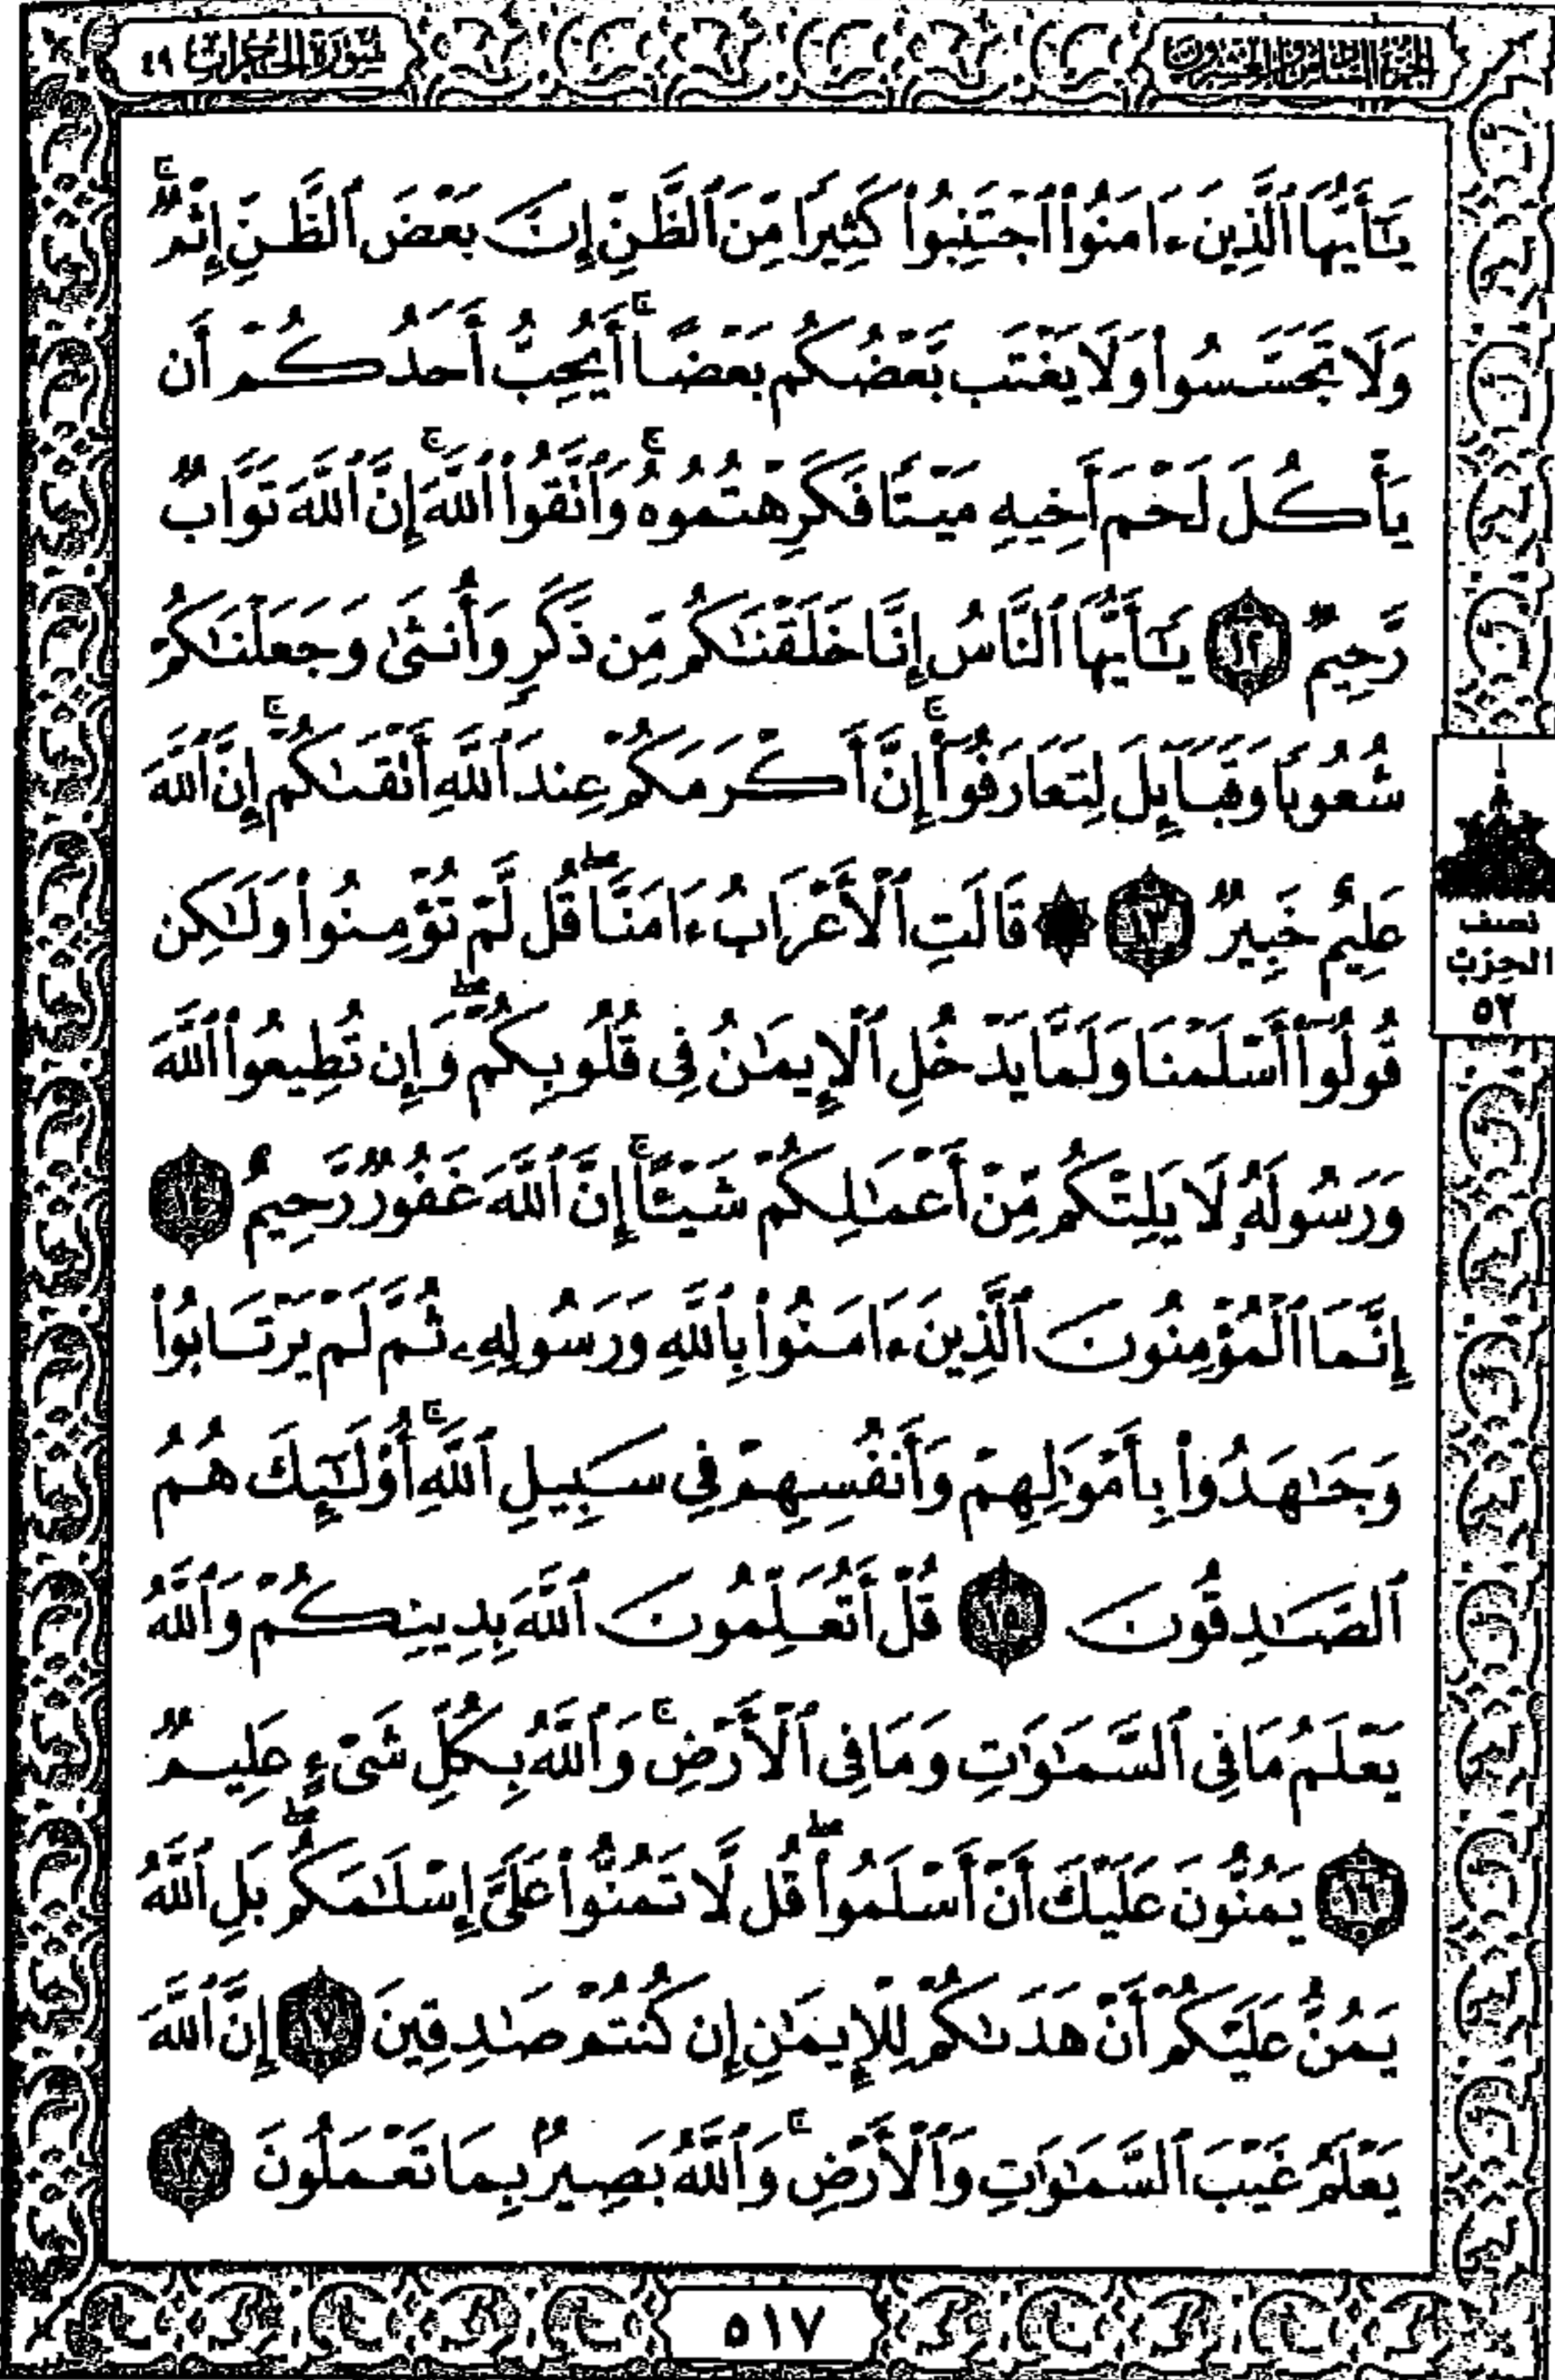 الجزء السادس والعشرون
سورة الحجرات ٤٩
يَـٰٓأَيُّهَا ٱلَّذِينَ ءَامَنُوا۟ ٱجْتَنِبُوا۟ كَثِيرًا مِّنَ ٱلظَّنِّ إِنَّ بَعْضَ ٱلظَّنِّ إِثْمٌ ۖ
وَلَا تَجَسَّسُوا۟ وَلَا يَغْتَب بَّعْضُكُم بَعْضًا ۚ أَيُحِبُّ أَحَدُكُمْ أَن
يَأْكُلَ لَحْمَ أَخِيهِ مَيْتًا فَكَرِهْتُمُوهُ ۚ وَٱتَّقُوا۟ ٱللَّهَ ۚ إِنَّ ٱللَّهَ تَوَّابٌ
رَّحِيمٌ ١٢ يَـٰٓأَيُّهَا ٱلنَّاسُ إِنَّا خَلَقْنَـٰكُم مِّن ذَكَرٍ وَأُنثَىٰ وَجَعَلْنَـٰكُمْ
شُعُوبًا وَقَبَآئِلَ لِتَعَارَفُوٓا۟ ۚ إِنَّ أَكْرَمَكُمْ عِندَ ٱللَّهِ أَتْقَىٰكُمْ ۚ إِنَّ ٱللَّهَ
عَلِيمٌ خَبِيرٌ ١٣ ۞ قَالَتِ ٱلْأَعْرَابُ ءَامَنَّا ۖ قُل لَّمْ تُؤْمِنُوا۟ وَلَـٰكِن
نصف
الحزب
٥٢
قُولُوٓا۟ أَسْلَمْنَا وَلَمَّا يَدْخُلِ ٱلْإِيمَـٰنُ فِى قُلُوبِكُمْ ۖ وَإِن تُطِيعُوا۟ ٱللَّهَ
وَرَسُولَهُۥ لَا يَلِتْكُم مِّنْ أَعْمَـٰلِكُمْ شَيْـًٔا ۚ إِنَّ ٱللَّهَ غَفُورٌ رَّحِيمٌ ١٤
إِنَّمَا ٱلْمُؤْمِنُونَ ٱلَّذِينَ ءَامَنُوا۟ بِٱللَّهِ وَرَسُولِهِۦ ثُمَّ لَمْ يَرْتَابُوا۟
وَجَـٰهَدُوا۟ بِأَمْوَٰلِهِمْ وَأَنفُسِهِمْ فِى سَبِيلِ ٱللَّهِ ۚ أُو۟لَـٰٓئِكَ هُمُ
ٱلصَّـٰدِقُونَ ١٥ قُلْ أَتُعَلِّمُونَ ٱللَّهَ بِدِينِكُمْ وَٱللَّهُ
يَعْلَمُ مَا فِى ٱلسَّمَـٰوَٰتِ وَمَا فِى ٱلْأَرْضِ ۚ وَٱللَّهُ بِكُلِّ شَىْءٍ عَلِيمٌ
١٦ يَمُنُّونَ عَلَيْكَ أَنْ أَسْلَمُوا۟ ۖ قُل لَّا تَمُنُّوا۟ عَلَىَّ إِسْلَـٰمَكُم ۖ بَلِ ٱللَّهُ
يَمُنُّ عَلَيْكُمْ أَنْ هَدَىٰكُمْ لِلْإِيمَـٰنِ إِن كُنتُمْ صَـٰدِقِينَ ١٧ إِنَّ ٱللَّهَ
يَعْلَمُ غَيْبَ ٱلسَّمَـٰوَٰتِ وَٱلْأَرْضِ ۚ وَٱللَّهُ بَصِيرٌۢ بِمَا تَعْمَلُونَ ١٨
٥١٧